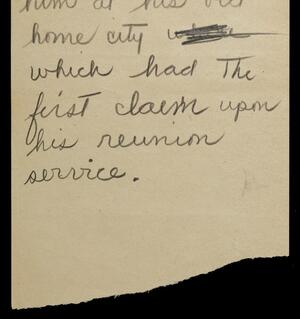 him at his old
home city
which had The
first claim upon
his reunion
service.